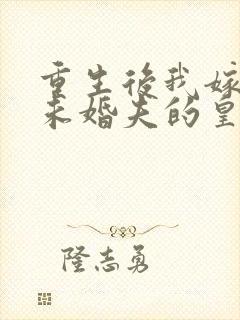 重生后我嫁
未婚夫的皇
隆志勇